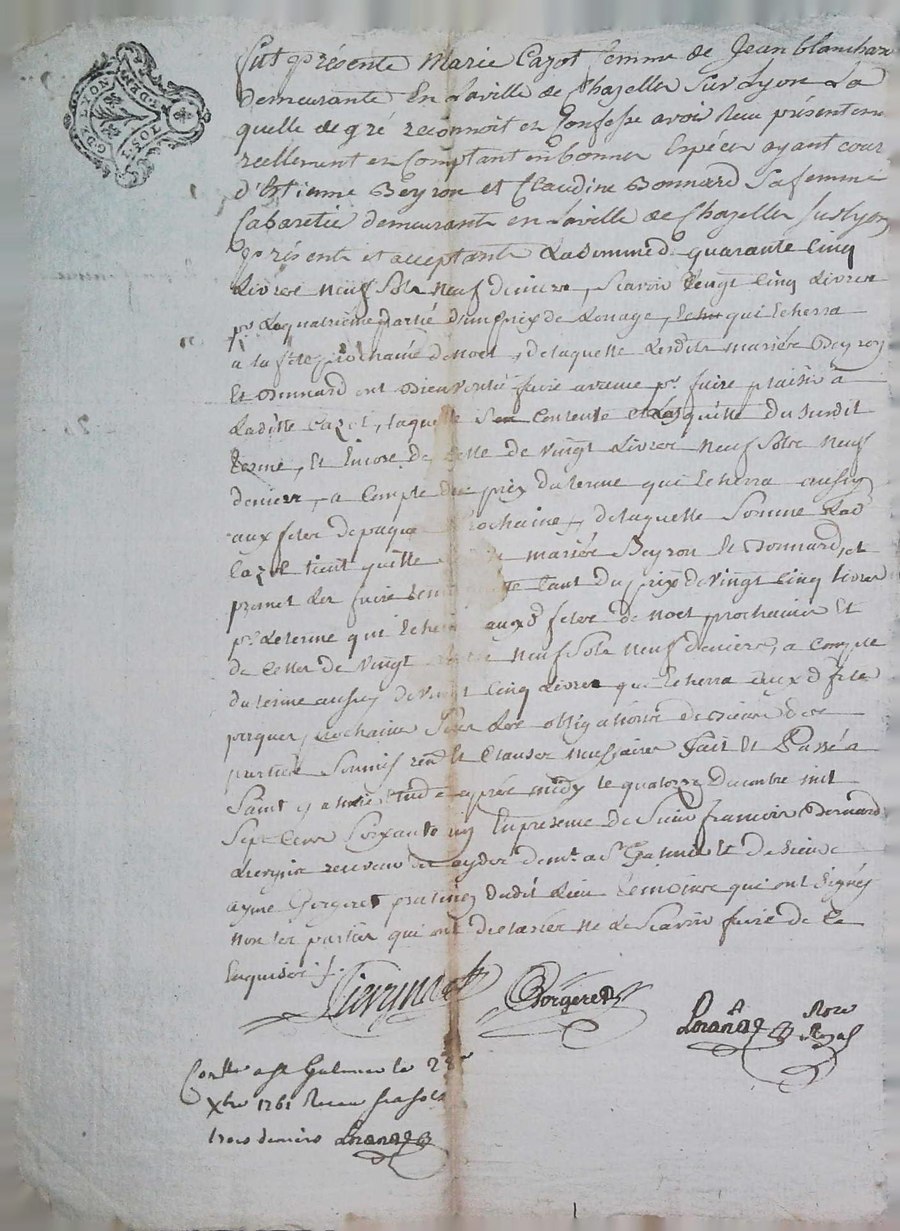 Fut présente Marie Cazot femme de Jean blanchard
demeurante En Laville de Chazelles Sur Lyon La
quelle de gré reconnoit et Confesse avoir Receu présentemt
reellement et Comptant en bonnes Espéces ayant cour
d'Etienne Beyron et Claudine Bonnard Sa femme
Cabaretié demeurants en Laville de Chazelles Sus Lyon
présents et acceptants La Somme de quarante Cinq
Livres neuf Sols neuf deniers, Scavoir Vingt Cinq Livres
pr La quatrième partie d'un prix de Louage, qui Echerra
a la féte prochaine de Noel, de laquelle Lesdits mariés Beyron
Et Bonnard ont bien voulu faire avance pr faire plaisir à
Laditte Cazot, laquelle S'en Contente et Les quitte du Susdit
terme, Et Encore de Celle de Vingt Livres neuf Sols neuf
deniers, a Compte du prix du terme qui Echerra aussy
aux fetes de paques prochaine, de laquelle Somme Lad
Cazot tient quitte mariés Beyron Et Bonnard, et
promet Les faire tant du prix de Vingt Cinq Livres
pr Le terme qui aux d fetes de Noel prochaines Et
de Celles de Vingt neuf Sols neuf deniers, a Compte
du terme aussy de Vingt Cinq Livres qui Echerra aux d fete
paques prochaine Sous Les obligations de biens des
parties Soumis renon Et Clauses nécessaires Fait Et Passé a
Saint Etude après midy le quatorze Decembre mil
Sept Cens Soixante un En présence de Sieur francois Bernard
receveur des aydes demt a St Galmier Et de Sieur
ayme Gorgeret praticien dudit Lieu témoins qui ont Signés
non les parties qui ont déclarés ne Le Scavoir faire de Ce
Enquises ./.
Gorgeret
Nore
Royal
Conllé a St Galmier le 28e
Xbre 1761 Receu
trois deniers